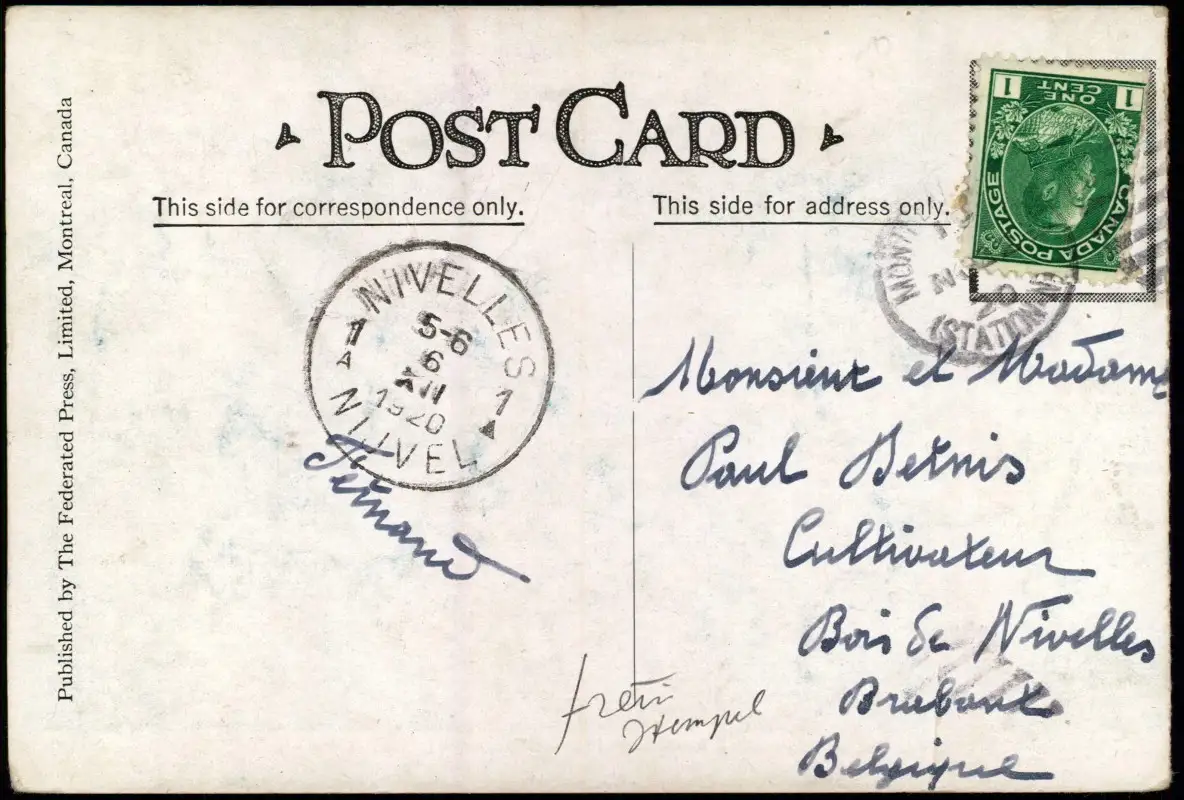 POST CARD
This side for correspondence only.
This side for address only.
Published by The Federated Press, Limited, Montreal, Canada
1 ONE CENT 1
CANADA POSTAGE
NIVELLES
5-6
6
XII
1920
NIJVEL
1 1
Fernand
Monsieur et Madame
Paul Bernis
Cultivateur
Bois de Nivelles
Brabant
Belgique
stempel
(STATION